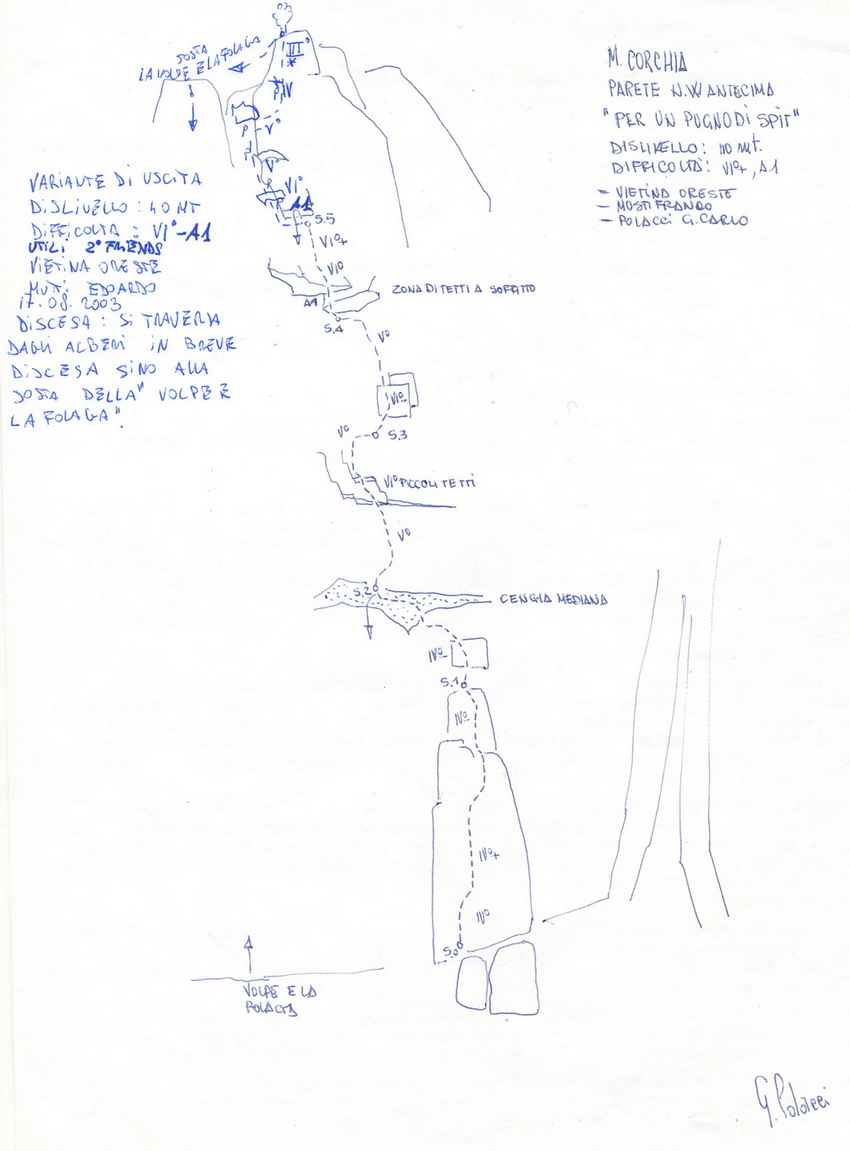 M. CORCHIA
PARETE N.W ANTECIMA
"PER UN PUGNO DI SPIT"
DISLIVELLO: 110 mt.
DIFFICOLTÀ: VI°+, A1
- VIETINA ORESTE
- MOSTI FRANCO
- POLACCI G. CARLO
SOSTA
LA VOLPE E LA FOLAGA
III
IV
V°
V°
VI°
A1
S.5
VI°+
VI°
ZONA DI TETTI A SOFFITTO
A1
S.4
V°
VI°
S.3
V°
VI° PICCOLI TETTI
V°
S.2
CENGIA MEDIANA
IV°
S.1
IV°
IV°+
IV°
S.0
VARIANTE DI USCITA
DISLIVELLO: 40 MT
DIFFICOLTA: VI°-A1
UTILI 2° FRIENDS
VIETINA ORESTE
MUTI: EDOARDO
17.08.2003
DISCESA: SI TRAVERSA
DAGLI ALBERI IN BREVE
DISCESA SINO ALLA
SOSTA DELLA "VOLPE E
LA FOLAGA".
VOLPE E LA
FOLAGA
G. Polacci